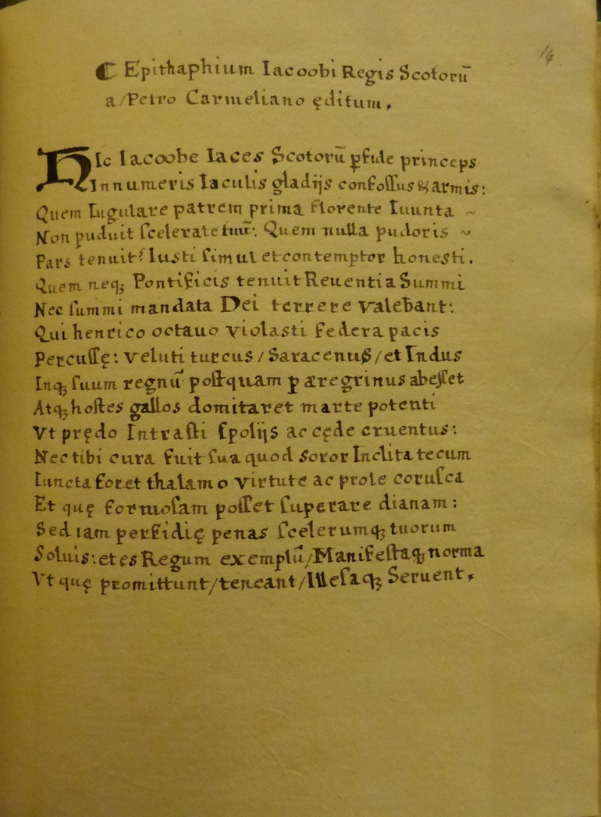 14
☾ Epithaphium Iacoobi Regis Scotorū
a/Petro Carmeliano ęditum,
HIc Iacoobe Iaces Scotorū ꝑfide princeps
Innumeris Iaculis gladijs confossus & armis:
Quem Iugulare patrem prima florente Iuunta ~
Non puduit scelerate tuū: Quem nulla pudoris ~
Pars tenuit: Iusti simul et contemptor honesti.
Quem neqꝫ Pontificis tenuit Reuentia Summi
Nec summi mandata Dei terrere valebant:
Qui henrico octauo violasti federa pacis
Percussę: veluti turcus/Saracenus/et Indus
Inqꝫ suum regnū postquam ꝑæregrinus abesset
Atqꝫ hostes gallos domitaret marte potenti
Vt prędo Intrasti spolijs ac cęde cruentus:
Nec tibi cura fuit sua quod soror Inclita tecum
Iuncta foret thalamo virtute ac prole corusca
Et quę formosam posset superare dianam:
Sed iam perfidię penas scelerumqꝫ tuorum
Soluis: et es Regum exemplū/Manifestaqꝫ norma
Vt quę promittunt/teneant/Illesaqꝫ Seruent,